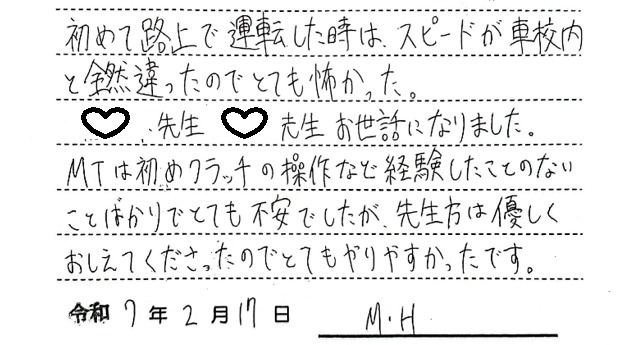 初めて路上で運転した時は、スピードが車校内
と全然違ったのでとても怖かった。
先生 先生 お世話になりました。
MTは初めクラッチの操作など経験したことのない
ことばかりでとても不安でしたが、先生方は優しく
おしえてくださったのでとてもやりやすかったです。
令和 7 年 2 月 17 日 M.H